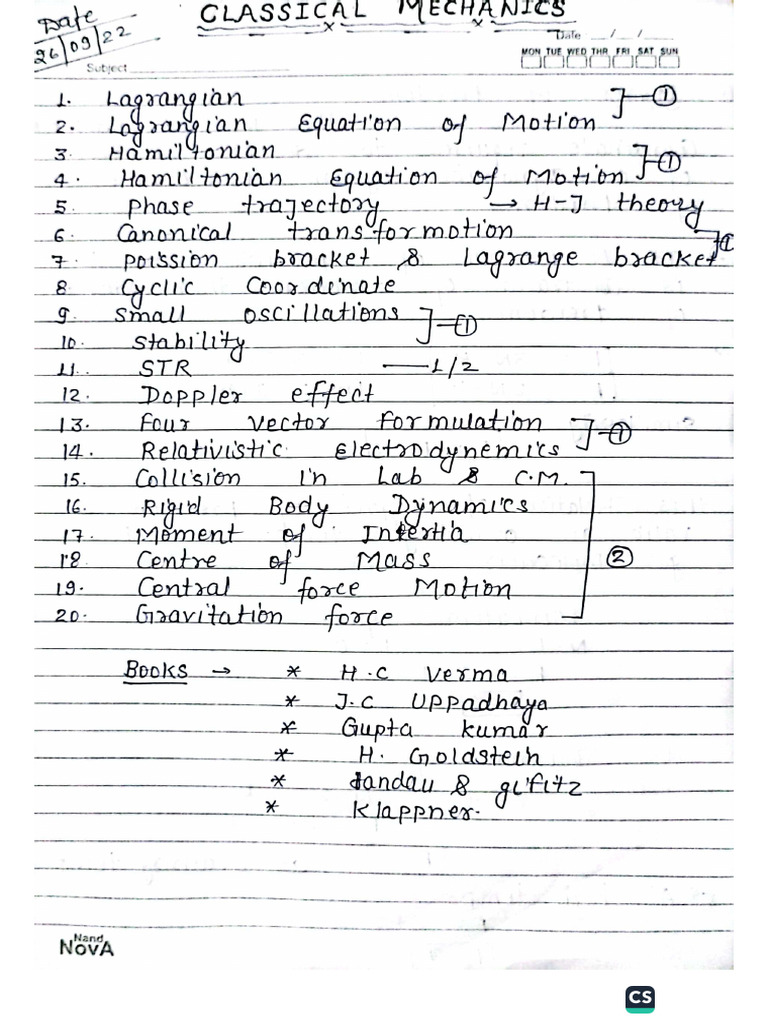 CLASSICAL MECHANICS
Date
26/09/22
Date __/__/__
MON TUE WED THR FRI SAT SUN
Subject
1. Lagrangian
2. Lagrangian Equation of Motion ①
3. Hamiltonian
4. Hamiltonian Equation of Motion ①
5. Phase trajectory → H-J theory
6. Canonical transformotion
7. Poission bracket & Lagrange bracket ①
8 Cyclic Coordinate
9. Small oscillations
10. Stability ①
11. STR — 1/2
12. Doppler effect
13. four vector formulation
14. Relativistic Electrodynemics ①
15. Collision in Lab & C.M.
16. Rigid Body Dynamics
17. Moment of Intertia
18 Centre of Mass ②
19. Central force Motion
20. Gravitation force
Books → * H.C Verma
* J.C Uppadhaya
* Gupta kumar
* H. Goldstein
* Landau & gifitz
* Klappner.
Nand
NovA
CS